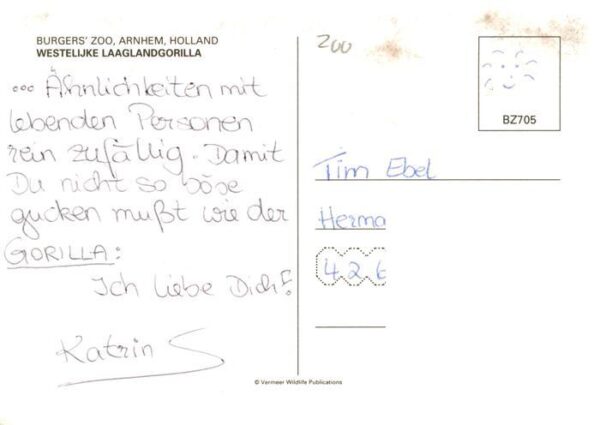 BURGERS' ZOO, ARNHEM, HOLLAND
WESTELIJKE LAAGLANDGORILLA
... Ähnlichkeiten mit
lebenden Personen
rein zufällig. Damit
Du nicht so böse
gucken mußt wie der
GORILLA:
Ich liebe Dich!
Katrin
ZOO
BZ705
Tim Ebel
Herma
4 2 6
© Vermeer Wildlife Publications